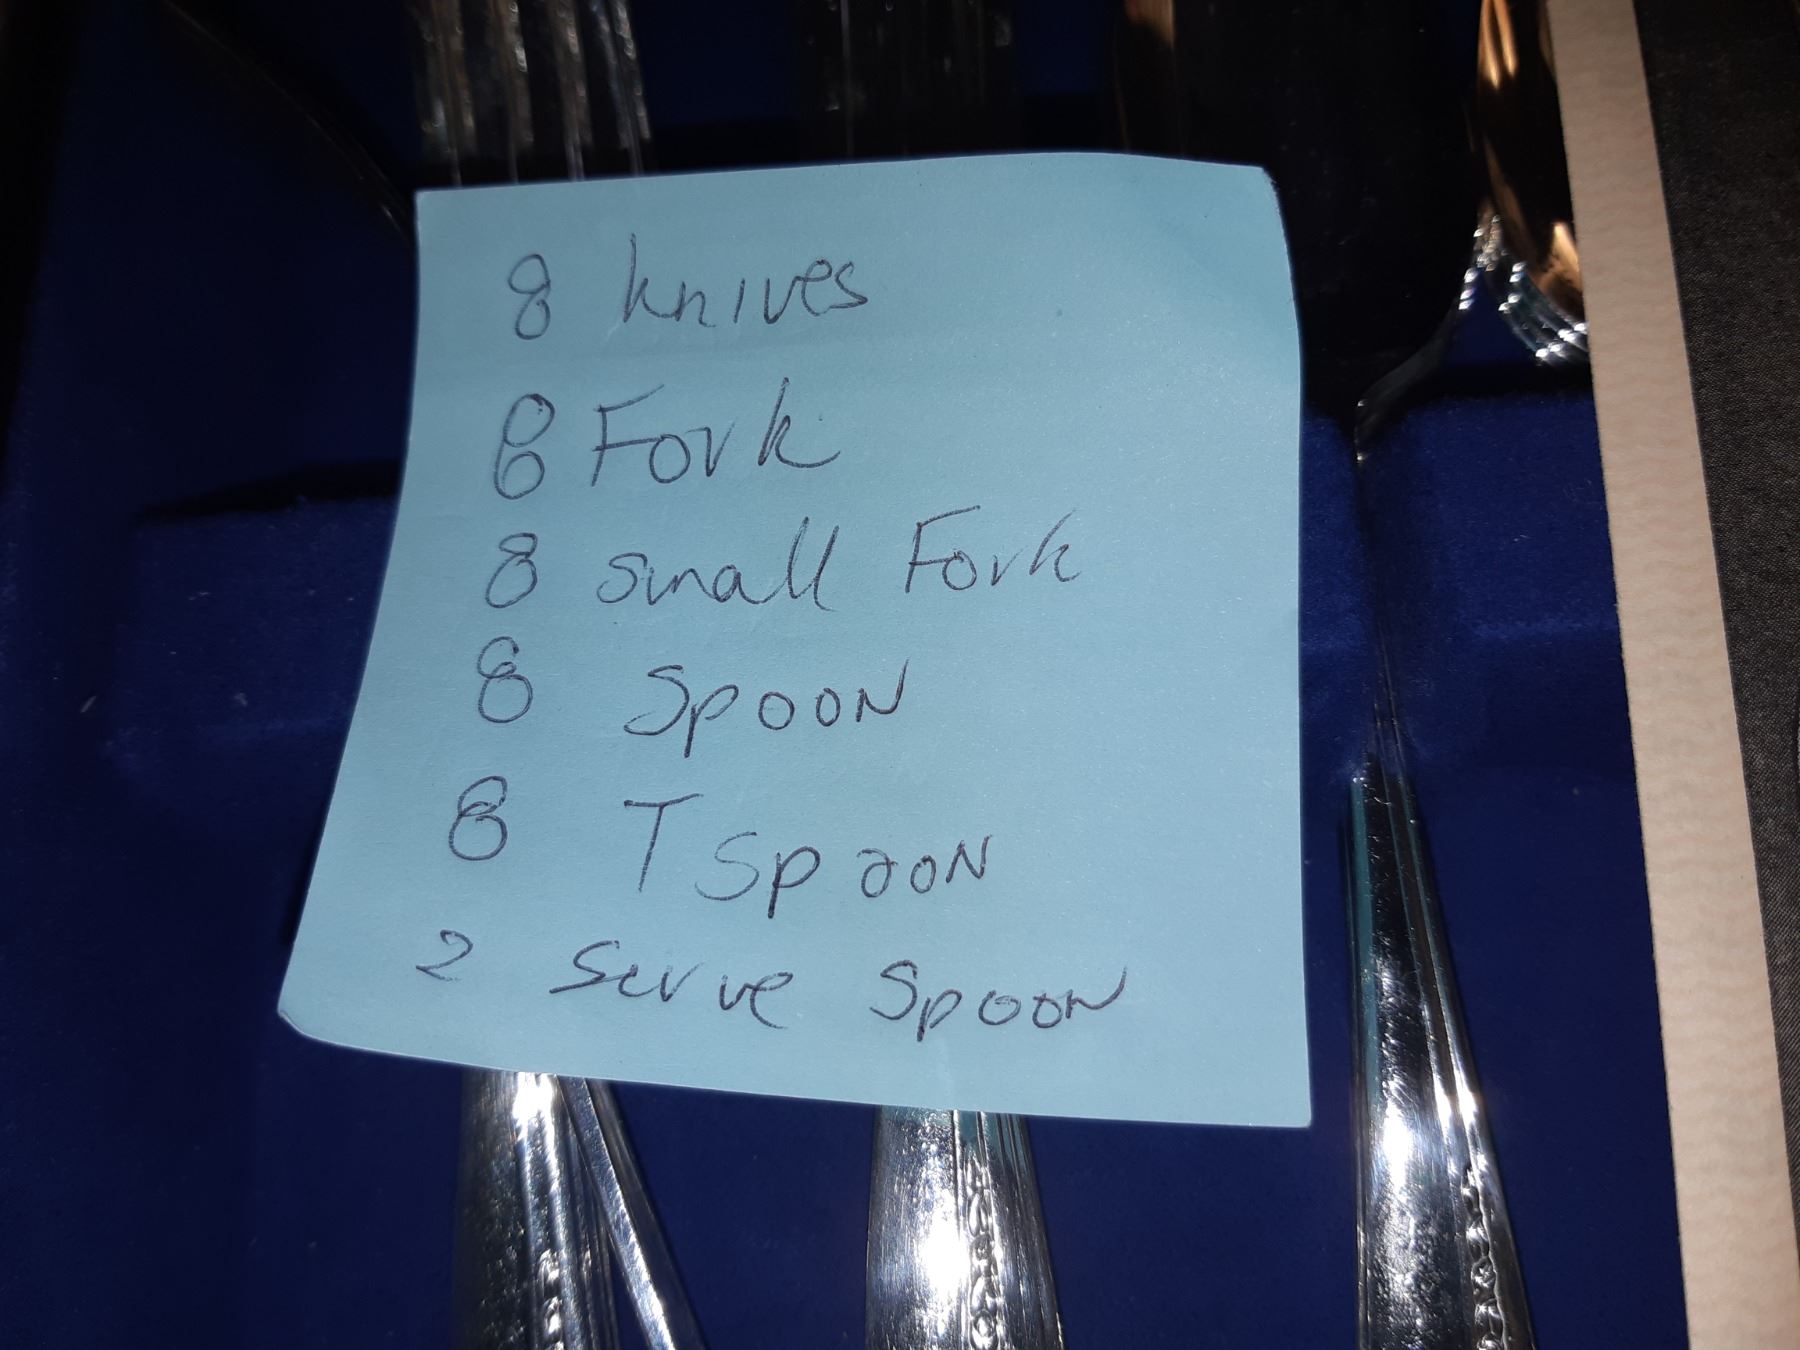 8 knives
8 Fork
8 small Fork
8 Spoon
8 T Spoon
2 Serve Spoon